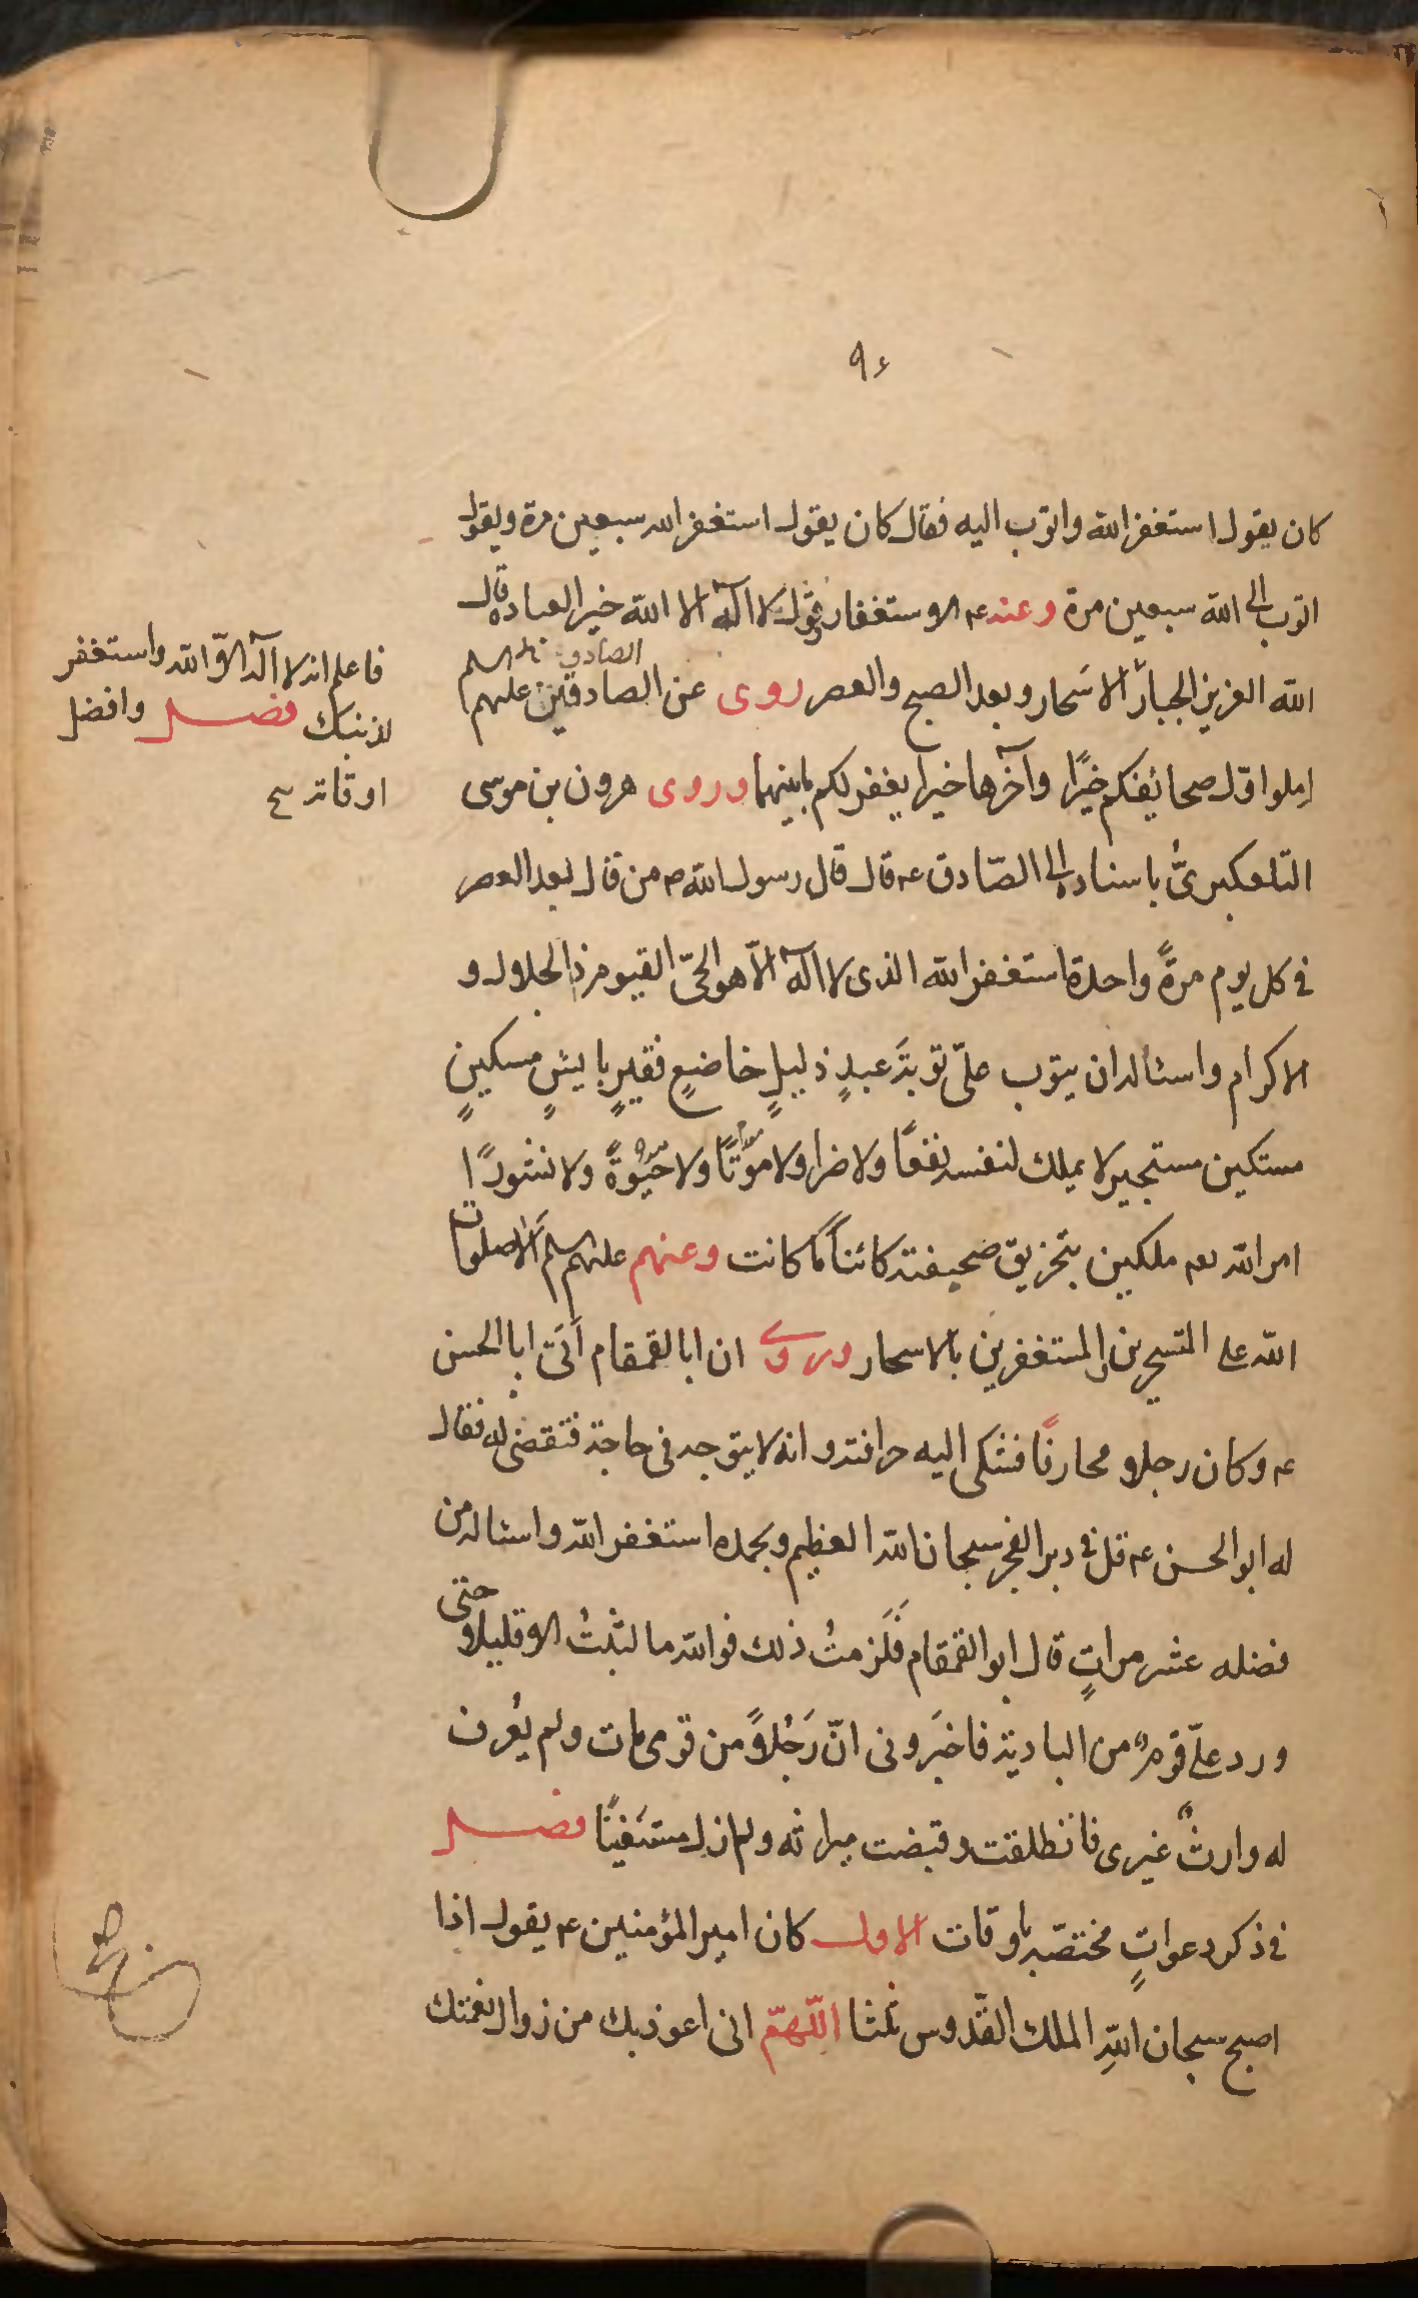 ٩٤
كان يقول استغفر الله واتوب اليه فقال كان يقول استغفر الله سبعين مرة ويقول
اتوب الى الله سبعين مرة وعنه ع الاستغفار وقول لا اله الا الله خير العبادة قال
الله العزيز الجبار الاسحار وبعد الصبح والعصر روى عن الصادقين عليهم السلم
املوا اوّل صحائفكم خيرًا وآخرها خيرا يغفر لكم ما بينهما وروى هرون بن موسى
التلعكبرىّ باسناده الى الصّادق ع قال قال رسول الله ص من قال بعد العصر
فى كل يوم مرةً واحدة استغفر الله الذى لا اله الّا هو الحىّ القيوم ذا الجلال و
الاكرام واسئاله ان يتوب علىّ توبةَ عبدٍ ذليلٍ خاضعٍ فقيرٍ بايسٍ مسكينٍ
مستكين مستجير لا يملك لنفسه نفعًا ولا ضرا ولا موتًا ولا حيٰوةً ولا نشورًا
امر الله تع ملكين بتخريق صحيفته كائناً ما كانت وعنهم عليهم السلم الا صلوات
الله على المتسحرين والمستغفرين بالاسحار وروى ان ابا القمقام اتىٰ ابا الحسن
ع وكان رجلا محارفًا فشكى اليه حرافته وانه لا يتوجه فى حاجة فتقضى له فقال
له ابو الحسن ع قل فى دبر الفجر سبحان الله العظيم وبحمده استغفر الله واسئاله من
فضله عشر مراتٍ قال ابو القمقام فَلَزمتُ ذلك فوالله ما لبثتُ الا قليلا حتى
ورد علىّ قومٌ من البادية فاخبَرونى انّ رَجُلاً من قومى مات ولم يُعرف
له وارثٌ غيرى فانطلقت وقبضت ميراثه ولم ازل مستغنيًا فصل
فى ذكر دعواتٍ مختصّة باوقات الاول كان امير المؤمنين ع يقول اذا
اصبح سبحان اللهِ الملك القدّوس ثلثا اللّهمّ انى اعوذ بك من زوال نعمتك
الصادق
فاعلم انه لا اله الّا الله واستغفر
لذنبك فصل وافضل
اوقاته